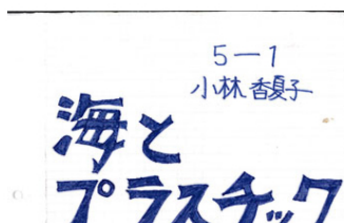 5-1
小林香夏子
海と
プラスチック